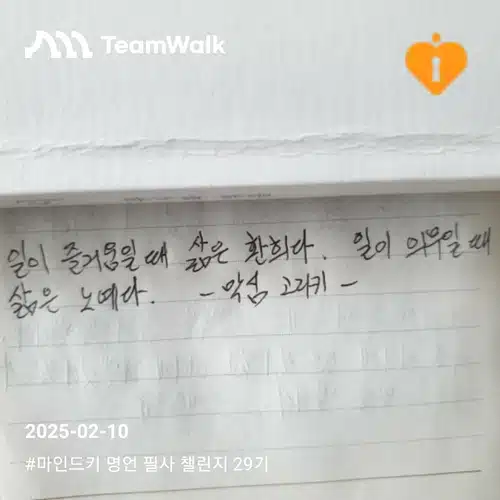 TeamWalk
일이 즐거움일 때 삶은 환희다. 일이 의무일 때
삶은 노예다. - 막심 고리키 -
2025-02-10
#마인드키 명언 필사 챌린지 29기